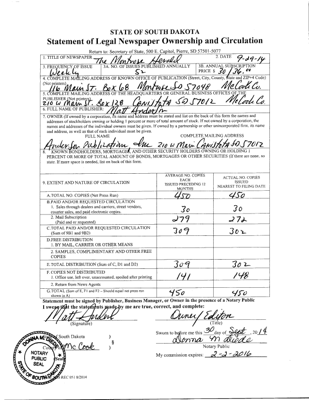 STATE OF SOUTH DAKOTA
Statement of Legal Newspaper Ownership and Circulation
Return to: Secretary of State, 500 E. Capitol, Pierre, SD 57501-5077
1. TITLE OF NEWSPAPER The Montrose Herald 2. DATE 9-29-14
3. FREQUENCY OF ISSUE Weekly
3A. NO. OF ISSUES PUBLISHED ANNUALLY 52
3B. ANNUAL SUBSCRIPTION PRICE $ 30/36.00
4. COMPLETE MAILING ADDRESS OF KNOWN OFFICE OF PUBLICATION (Street, City, County, State and ZIP+4 Code)
116 Main St. Box 68 Montrose SD 57048 McCook Co.
5. COMPLETE MAILING ADDRESS OF THE HEADQUARTERS OF GENERAL BUSINESS OFFICES OF THE PUBLISHER
210 W Main St. Box 128 Canistota SD 57012 McCook Co.
6. FULL NAME OF PUBLISHER: Matt Anderson
7. OWNER (If owned by a corporation, its name and address must be stated and list on the back of this form the names and
addresses of stockholders owning or holding 1 percent or more of total amount of stock. If not owned by a corporation, the
names and addresses of the individual owners must be given. If owned by a partnership or other unincorporated firm, its name
and address, as well as that of each individual must be given.
FULL NAME COMPLETE MAILING ADDRESS
Anderson Publications Inc 210 W Main Canistota SD 57012
8. KNOWN BONDHOLDERS, MORTGAGEES AND OTHER SECURITY HOLDERS OWNING OR HOLDING 1
PERCENT OR MORE OF TOTAL AMOUNT OF BONDS, MORTGAGES OR OTHER SECURITIES (If there are none, so
state. If more space is needed, list on back of this form.
9. EXTENT AND NATURE OF CIRCULATION
AVERAGE NO. COPIES EACH ISSUED PRECEDING 12 MONTHS
ACTUAL NO. COPIES ISSUED NEAREST TO FILING DATE
A. TOTAL NO. COPIES (Net Press Run) 450 450
B. PAID AND/OR REQUESTED CIRCULATION
1. Sales through dealers and carriers, street vendors,
counter sales, and paid electronic copies. 30 30
2. Mail Subscription
(Paid and or requested) 279 272
C. TOTAL PAID AND/OR REQUESTED CIRCULATION
(Sum of 9B1 and 9B2) 309 302
D. FREE DISTRIBUTION
1. BY MAIL, CARRIER OR OTHER MEANS
2. SAMPLES, COMPLIMENTARY AND OTHER FREE
COPIES
E. TOTAL DISTRIBUTION (Sum of C, D1 and D2) 309 302
F. COPIES NOT DISTRIBUTED
1. Office use, left over, unaccounted, spoiled after printing 141 148
2. Return from News Agents
G. TOTAL (Sum of E, F1 and F2 - Should equal net press run
shown in A) 450 450
Statement must be signed by Publisher, Business Manager, or Owner in the presence of a Notary Public
I swear that the statements made by me are true, correct, and complete:
(Signature)
(Title)
South Dakota
McCook
Sworn to before me this 30 day of Sept. 2014
Donna M
Notary Public
My commission expires: 2-2-2016
NOTARY
PUBLIC
SEAL